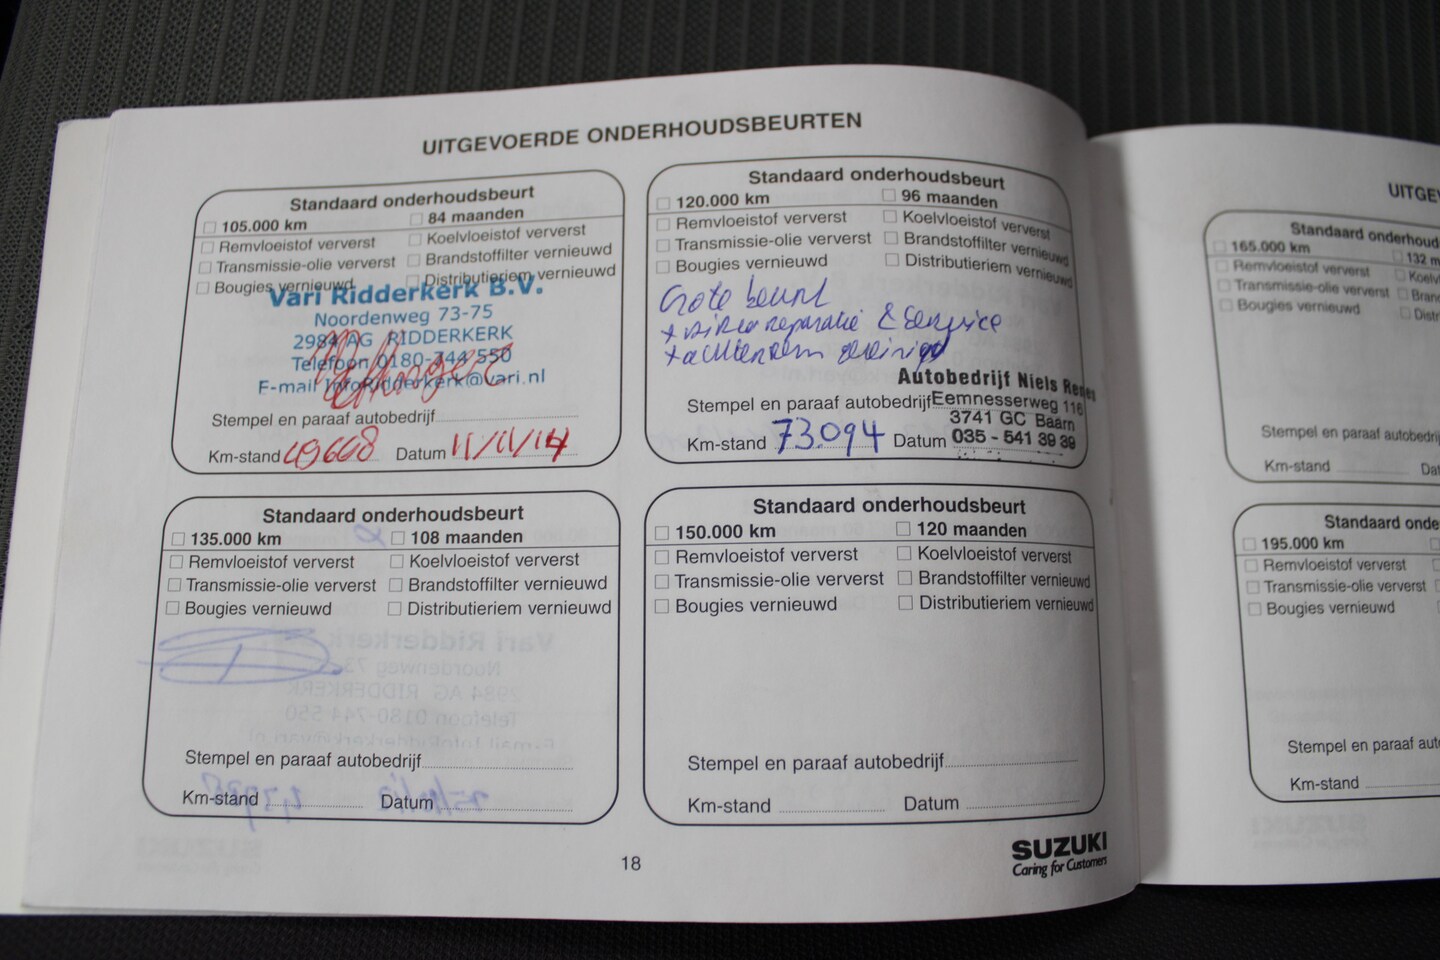 UITGEVOERDE ONDERHOUDSBEURTEN
Standaard onderhoudsbeurt
105.000 km 84 maanden
Remvloeistof ververst Koelvloeistof ververst
Transmissie-olie ververst Brandstoffilter vernieuwd
Bougies vernieuwd Distributieriem vernieuwd
Vari Ridderkerk B.V.
Noordenweg 73-75
2984 AG RIDDERKERK
Telefoon 0180-744 550
E-mail InfoRidderkerk@vari.nl
Stempel en paraaf autobedrijf
Km-stand 49668 Datum 11/11/14
Standaard onderhoudsbeurt
120.000 km 96 maanden
Remvloeistof ververst Koelvloeistof ververst
Transmissie-olie ververst Brandstoffilter vernieuwd
Bougies vernieuwd Distributieriem vernieuwd
Grote beurt
+ Airco reparatie & service
+ achterrem gereinigd
Autobedrijf Niels
Stempel en paraaf autobedrijf Eemnesserweg 116
3741 GC Baarn
Km-stand 73.094 Datum 035 - 541 39 39
Standaard onderhoudsbeurt
135.000 km 108 maanden
Remvloeistof ververst Koelvloeistof ververst
Transmissie-olie ververst Brandstoffilter vernieuwd
Bougies vernieuwd Distributieriem vernieuwd
Stempel en paraaf autobedrijf
Km-stand Datum
Standaard onderhoudsbeurt
150.000 km 120 maanden
Remvloeistof ververst Koelvloeistof ververst
Transmissie-olie ververst Brandstoffilter vernieuwd
Bougies vernieuwd Distributieriem vernieuwd
Stempel en paraaf autobedrijf
Km-stand Datum
18
SUZUKI
Caring for Customers
UITGEV
Standaard onderhoud
165.000 km 132 m
Remvloeistof ververst Koelv
Transmissie-olie ververst Bran
Bougies vernieuwd Distr
Stempel en paraaf autobedrij
Km-stand Dat
Standaard onde
195.000 km
Remvloeistof ververst
Transmissie-olie ververst
Bougies vernieuwd
Stempel en paraaf aut
Km-stand